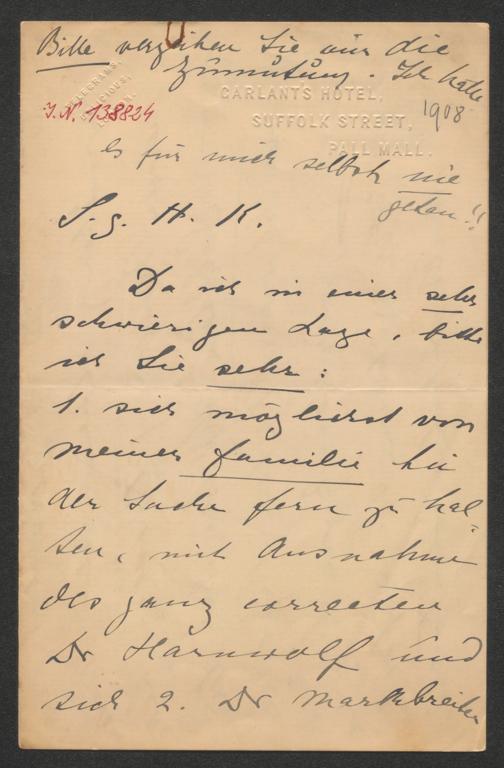 Bitte verzeihen Sie mir die
Zumutung. Ich hätte
TELEGRAMS,
LONDON.
GARLANTS HOTEL,
J.N. 138824
SUFFOLK STREET,
1908
PALL MALL.
es für mich selbst nie
getan!!
S. g. H. K.
Da ich in einer sehr
schwierigen Lage, bitte
ich Sie sehr:
1. sich möglichst von
meiner Familie in
der Sache fern zu hal-
ten, mit Ausnahme
des ganz correcten
Dr Harnwolf und
sich 2. Dr Markbreiter